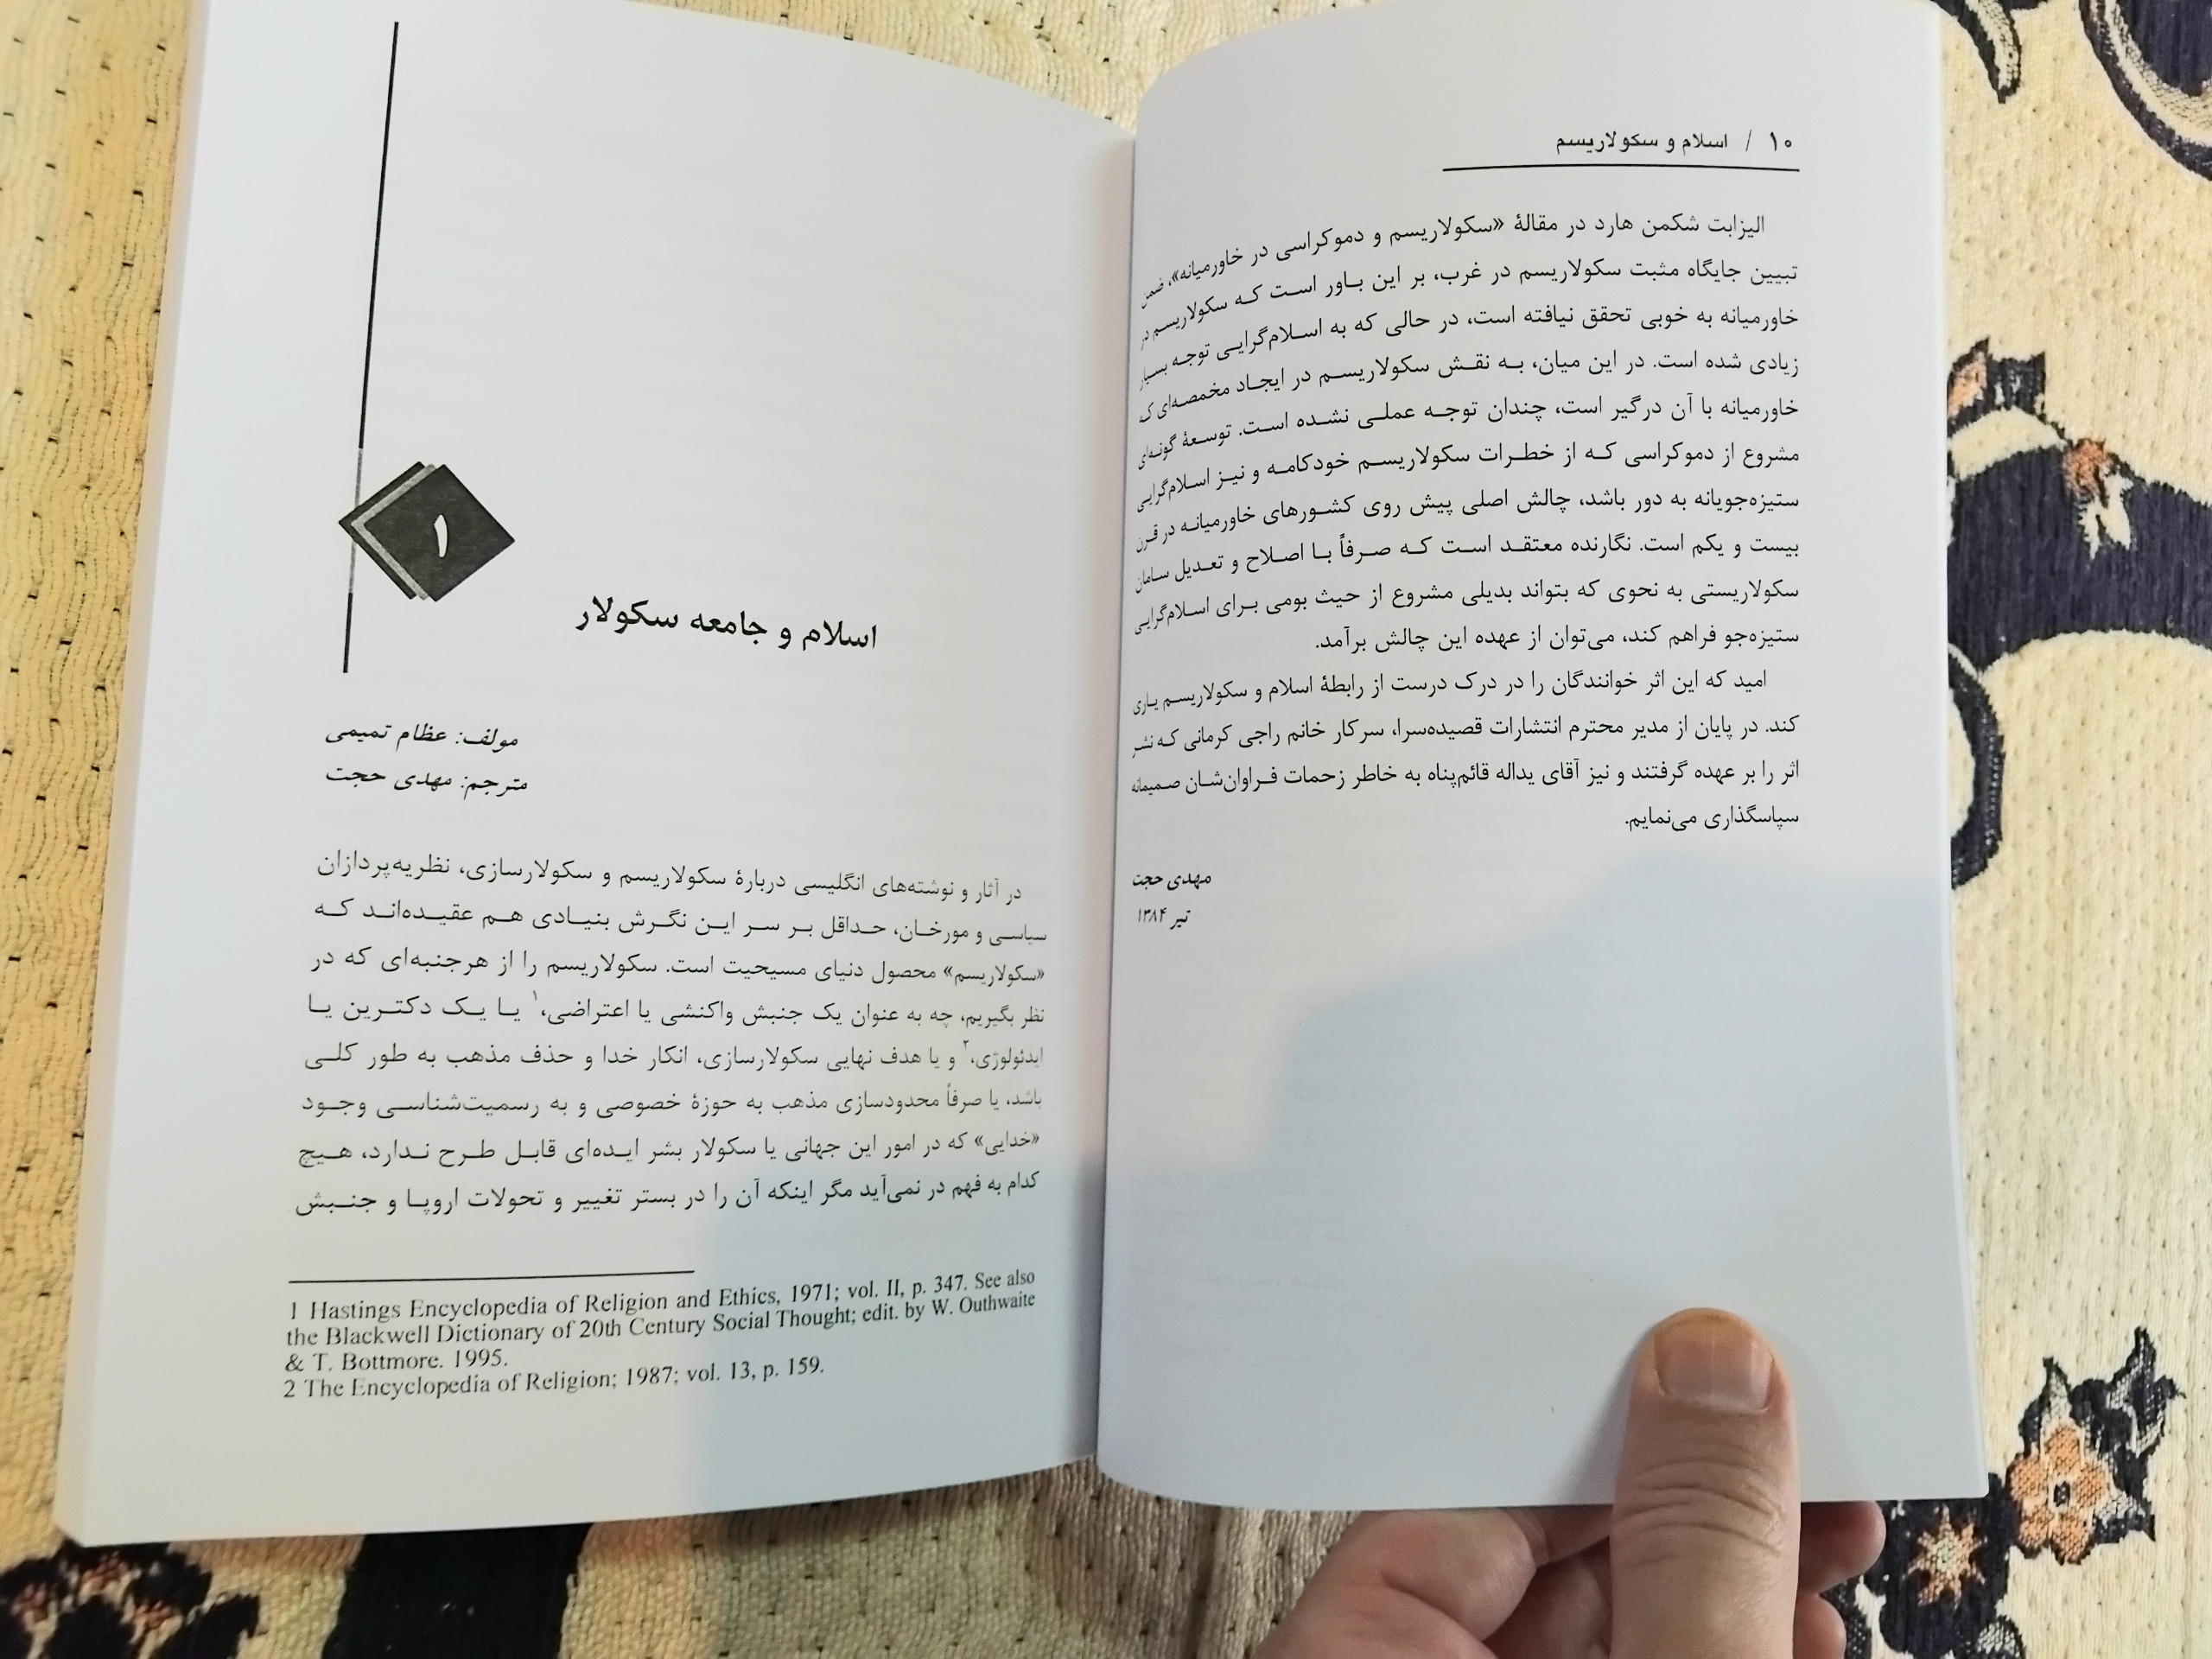 ۱۰ / اسلام و سکولاریسم
الیزابت شکمن هارد در مقالهٔ «سکولاریسم و دموکراسی در خاورمیانه»، ضمن
تبیین جایگاه مثبت سکولاریسم در غرب، بر این باور است که سکولاریسم در
خاورمیانه به خوبی تحقق نیافته است، در حالی که به اسلام‌گرایی توجه بسیار
زیادی شده است. در این میان، به نقش سکولاریسم در ایجاد مخمصه‌ای که
خاورمیانه با آن درگیر است، چندان توجه عملی نشده است. توسعهٔ گونه‌ای
مشروع از دموکراسی که از خطرات سکولاریسم خودکامه و نیز اسلام‌گرایی
ستیزه‌جویانه به دور باشد، چالش اصلی پیش روی کشورهای خاورمیانه در قرن
بیست و یکم است. نگارنده معتقد است که صرفاً با اصلاح و تعدیل سامان
سکولاریستی به نحوی که بتواند بدیلی مشروع از حیث بومی برای اسلام‌گرایی
ستیزه‌جو فراهم کند، می‌توان از عهده این چالش برآمد.
امید که این اثر خوانندگان را در درک درست از رابطهٔ اسلام و سکولاریسم یاری
کند. در پایان از مدیر محترم انتشارات قصیده‌سرا، سرکار خانم راجی کرمانی که نشر
اثر را بر عهده گرفتند و نیز آقای یداله قائم‌پناه به خاطر زحمات فراوان‌شان صمیمانه
سپاسگذاری می‌نمایم.
مهدی حجت
تیر ۱۳۸۴
۱
اسلام و جامعه سکولار
مولف: عظام تمیمی
مترجم: مهدی حجت
در آثار و نوشته‌های انگلیسی دربارهٔ سکولاریسم و سکولارسازی، نظریه‌پردازان
سیاسی و مورخان، حداقل بر سر این نگرش بنیادی هم عقیده‌اند که
«سکولاریسم» محصول دنیای مسیحیت است. سکولاریسم را از هرجنبه‌ای که در
نظر بگیریم، چه به عنوان یک جنبش واکنشی یا اعتراضی،۱ یا یک دکترین یا
ایدئولوژی،۲ و یا هدف نهایی سکولارسازی، انکار خدا و حذف مذهب به طور کلی
باشد، یا صرفاً محدودسازی مذهب به حوزهٔ خصوصی و به رسمیت‌شناسی وجود
«خدایی» که در امور این جهانی یا سکولار بشر ایده‌ای قابل طرح ندارد، هیچ
کدام به فهم در نمی‌آید مگر اینکه آن را در بستر تغییر و تحولات اروپا و جنبش
1 Hastings Encyclopedia of Religion and Ethics, 1971; vol. II, p. 347. See also
the Blackwell Dictionary of 20th Century Social Thought; edit. by W. Outhwaite
& T. Bottmore. 1995.
2 The Encyclopedia of Religion; 1987; vol. 13, p. 159.